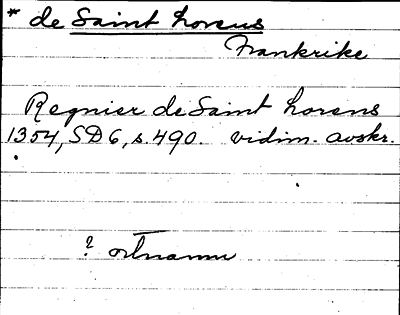 * de Saint Lorens
Frankrike
Regnier de Saint Lorens
1354, SD 6, s. 490. vidim. avskr.
? ortnamn